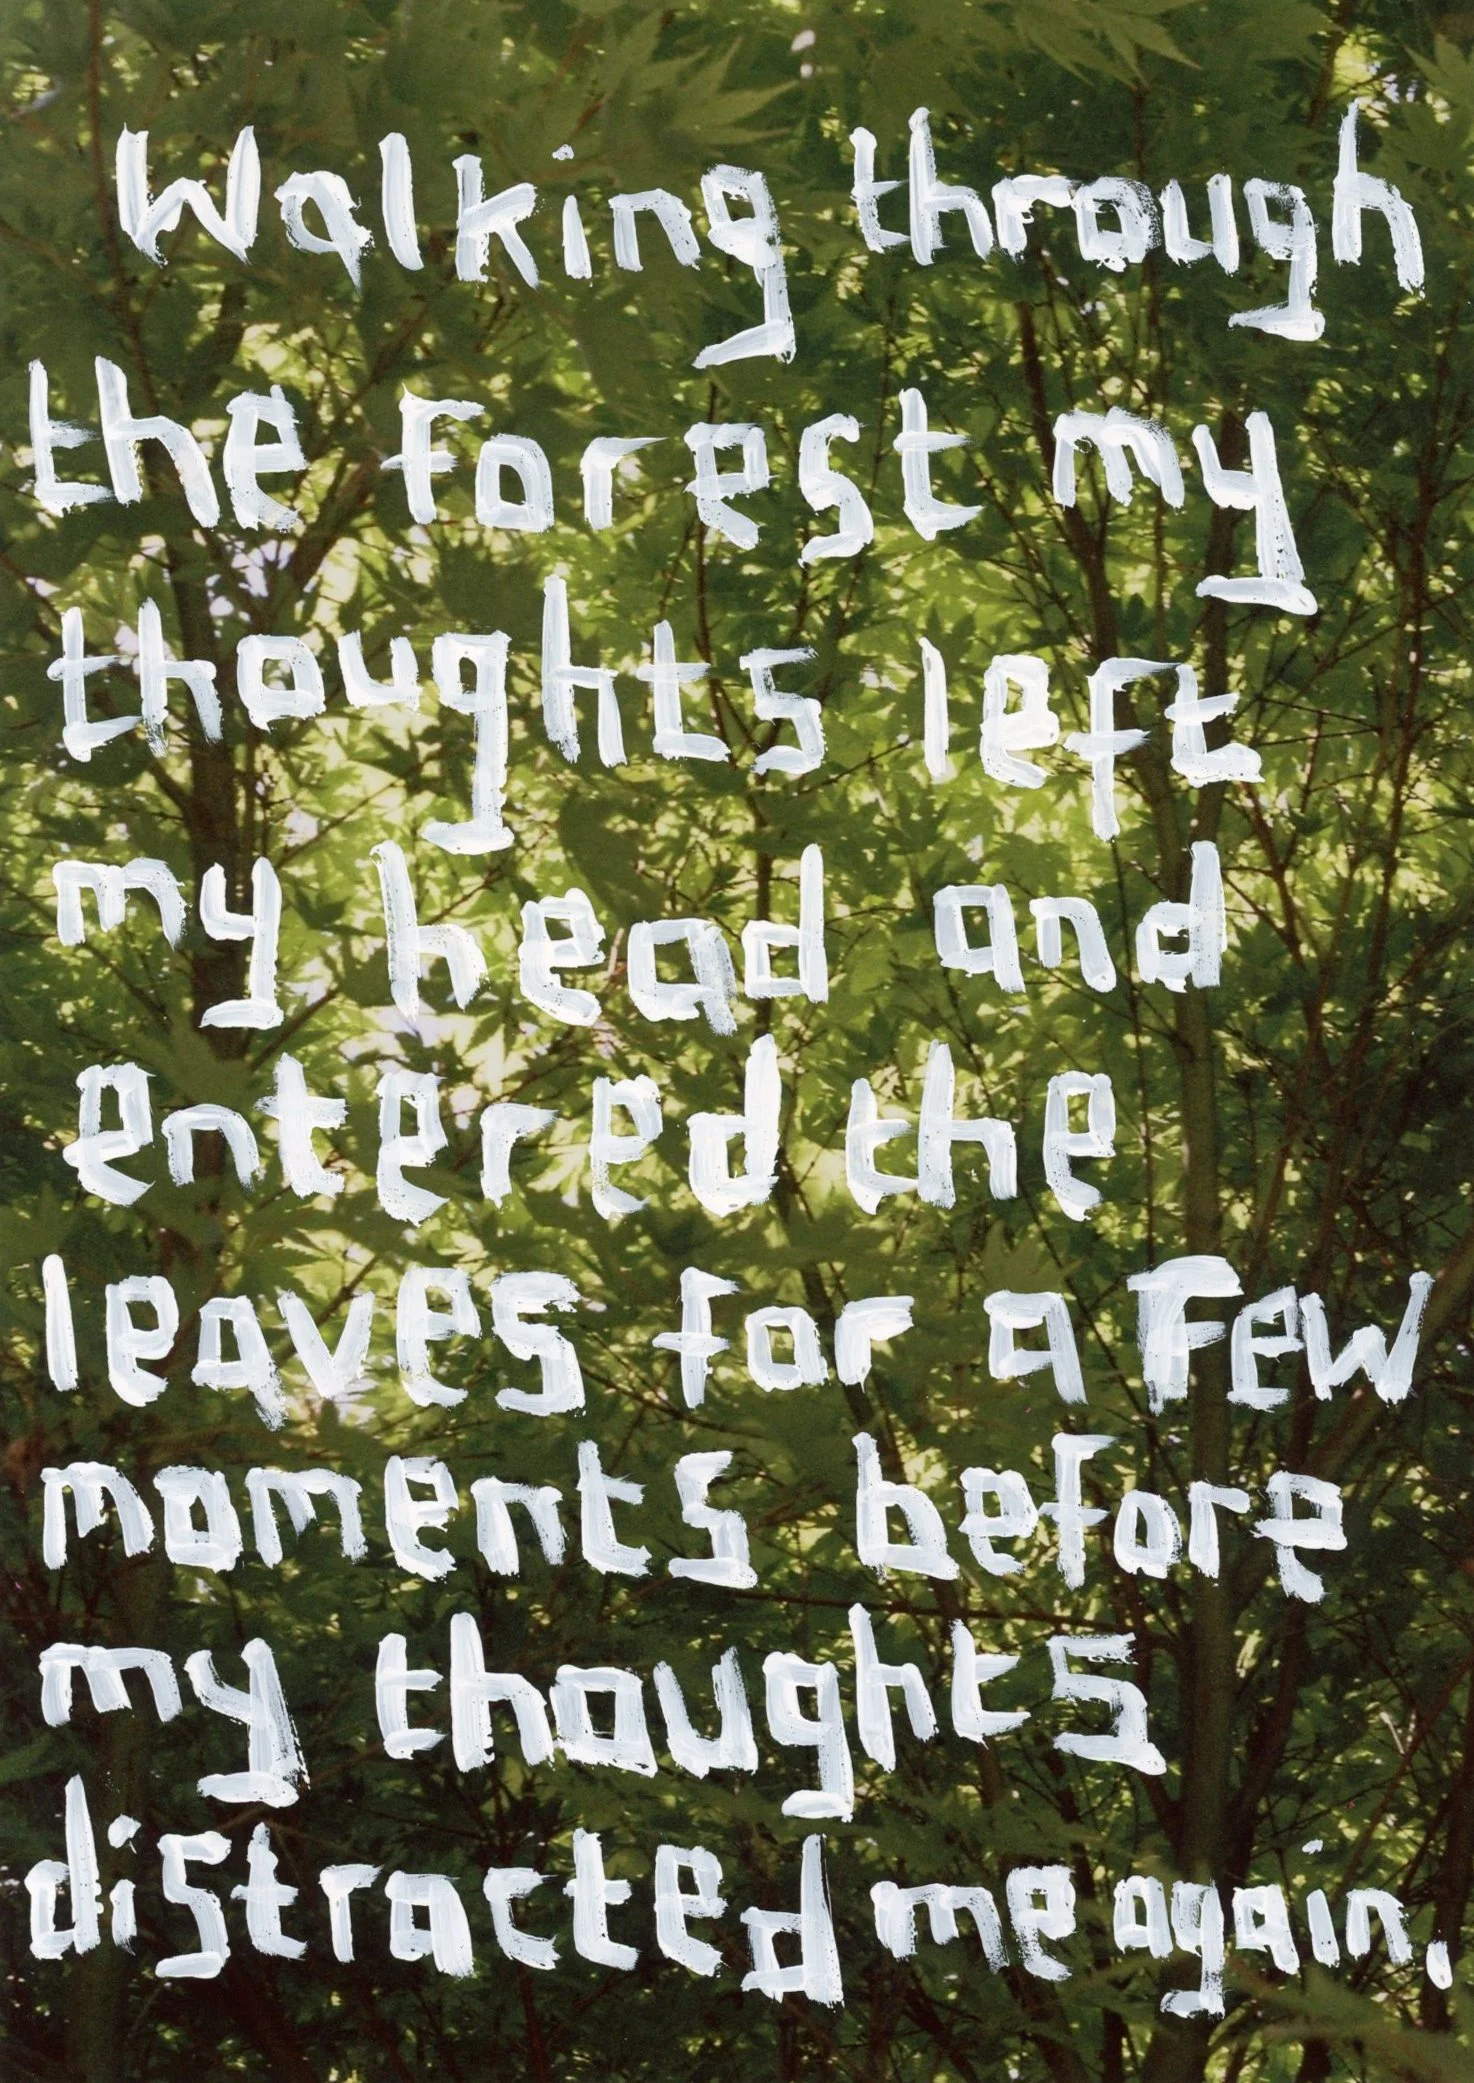 Walking through
the forest my
thoughts left
my head and
entered the
leaves for a few
moments before
my thoughts
distracted me again.